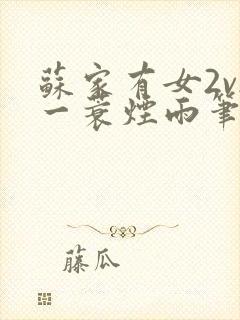 蘇家有女2v
一蓑煙雨筆
藤瓜